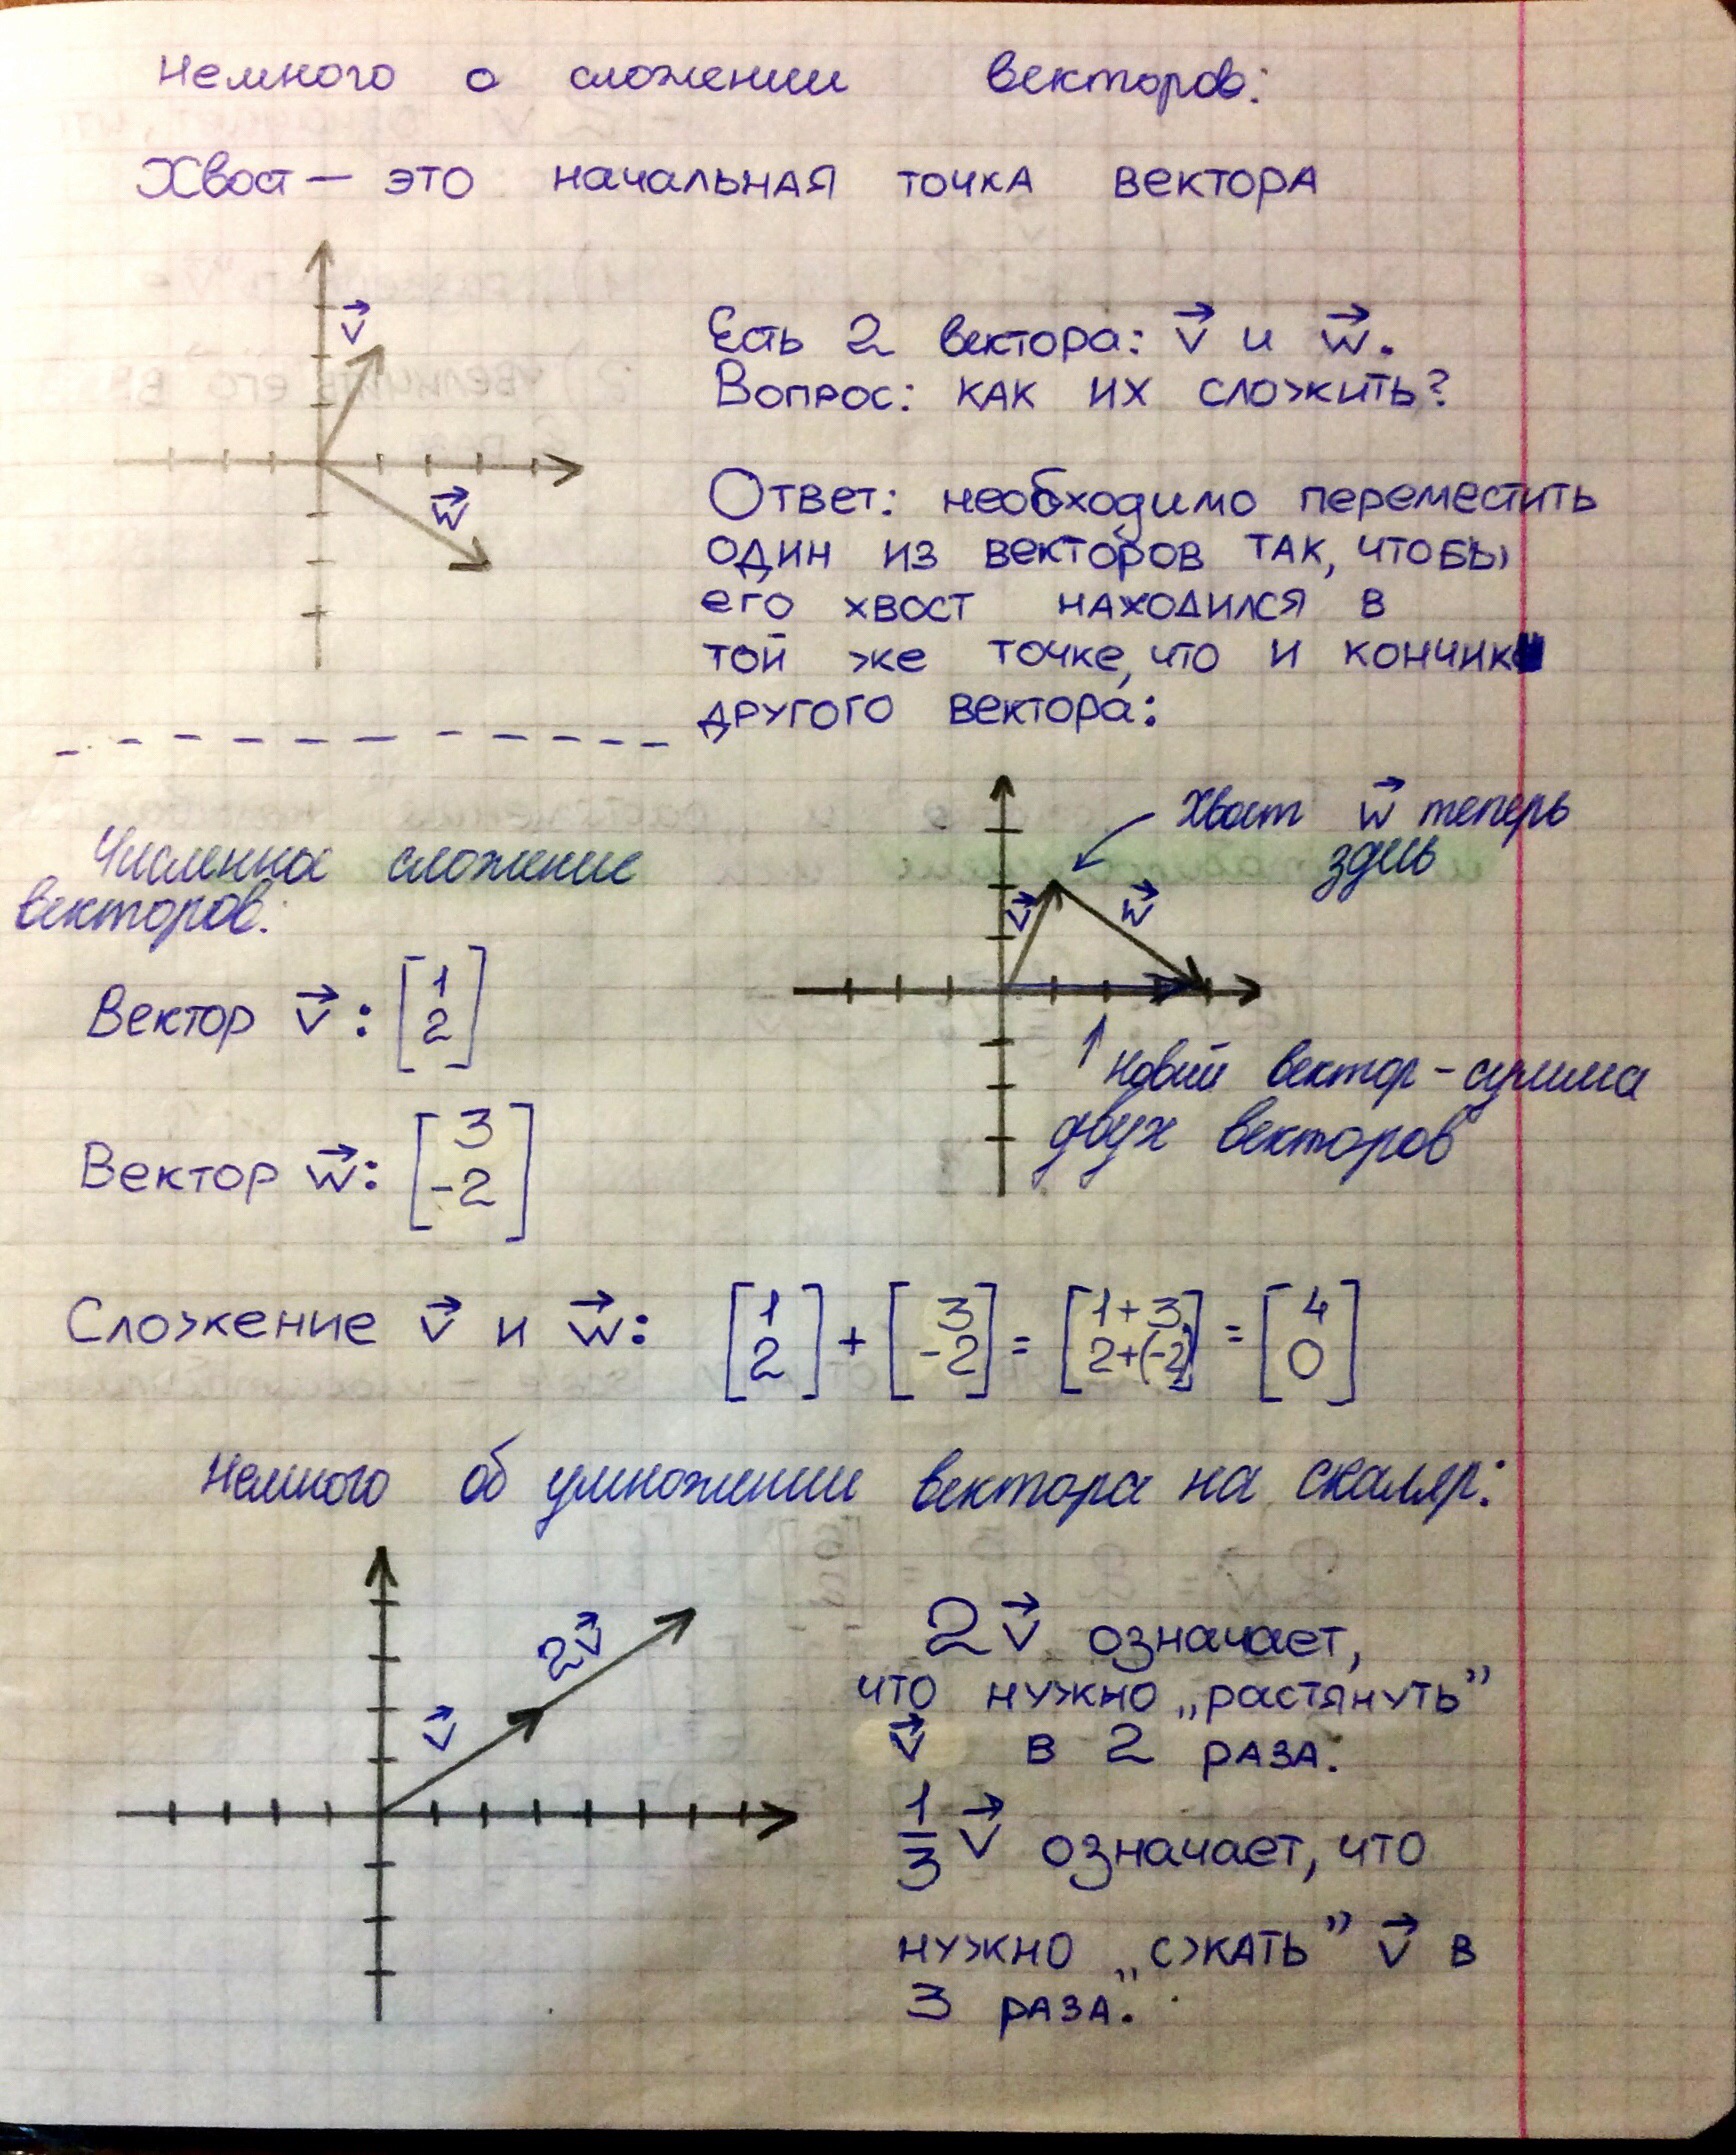 Немного о сложении векторов:
Хвост — это начальная точка вектора
v⃗
w⃗
Есть 2 вектора: v⃗ и w⃗.
Вопрос: как их сложить?
Ответ: необходимо переместить
один из векторов так, чтобы
его хвост находился в
той же точке, что и кончик
другого вектора:
Хвост w⃗ теперь
здесь
v⃗ w⃗
новый вектор - сумма
двух векторов
Численное сложение
векторов:
Вектор v⃗: [1 2]
Вектор w⃗: [3 -2]
Сложение v⃗ и w⃗: [1 2] + [3 -2] = [1+3 2+(-2)] = [4 0]
Немного об умножении вектора на скаляр:
2v⃗
v⃗
2v⃗ означает,
что нужно „растянуть”
v⃗ в 2 раза.
1/3 v⃗ означает, что
нужно „сжать” v⃗ в
3 раза.